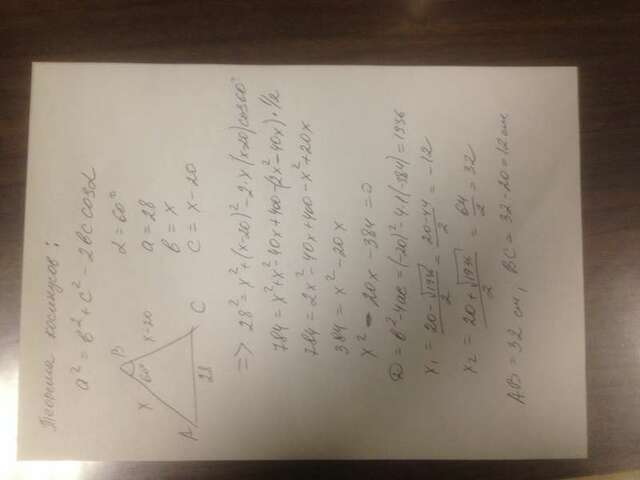 Теорема косинусов:
a² = b² + c² - 2bc cosα
A
x
60°
B
28
x-20
C
α = 60°
a = 28
b = x
c = x - 20
=> 28² = x² + (x-20)² - 2·x(x-20)cos60°
784 = x² + x² - 40x + 400 - (2x² - 40x)·1/2
784 = 2x² - 40x + 400 - x² + 20x
384 = x² - 20x
x² - 20x - 384 = 0
D = b² - 4ac = (-20)² - 4·1(-384) = 1936
x₁ = (20 - √1936)/2 = (20-44)/2 = -12
x₂ = (20 + √1936)/2 = 64/2 = 32
AB = 32 см, BC = 32 - 20 = 12 см